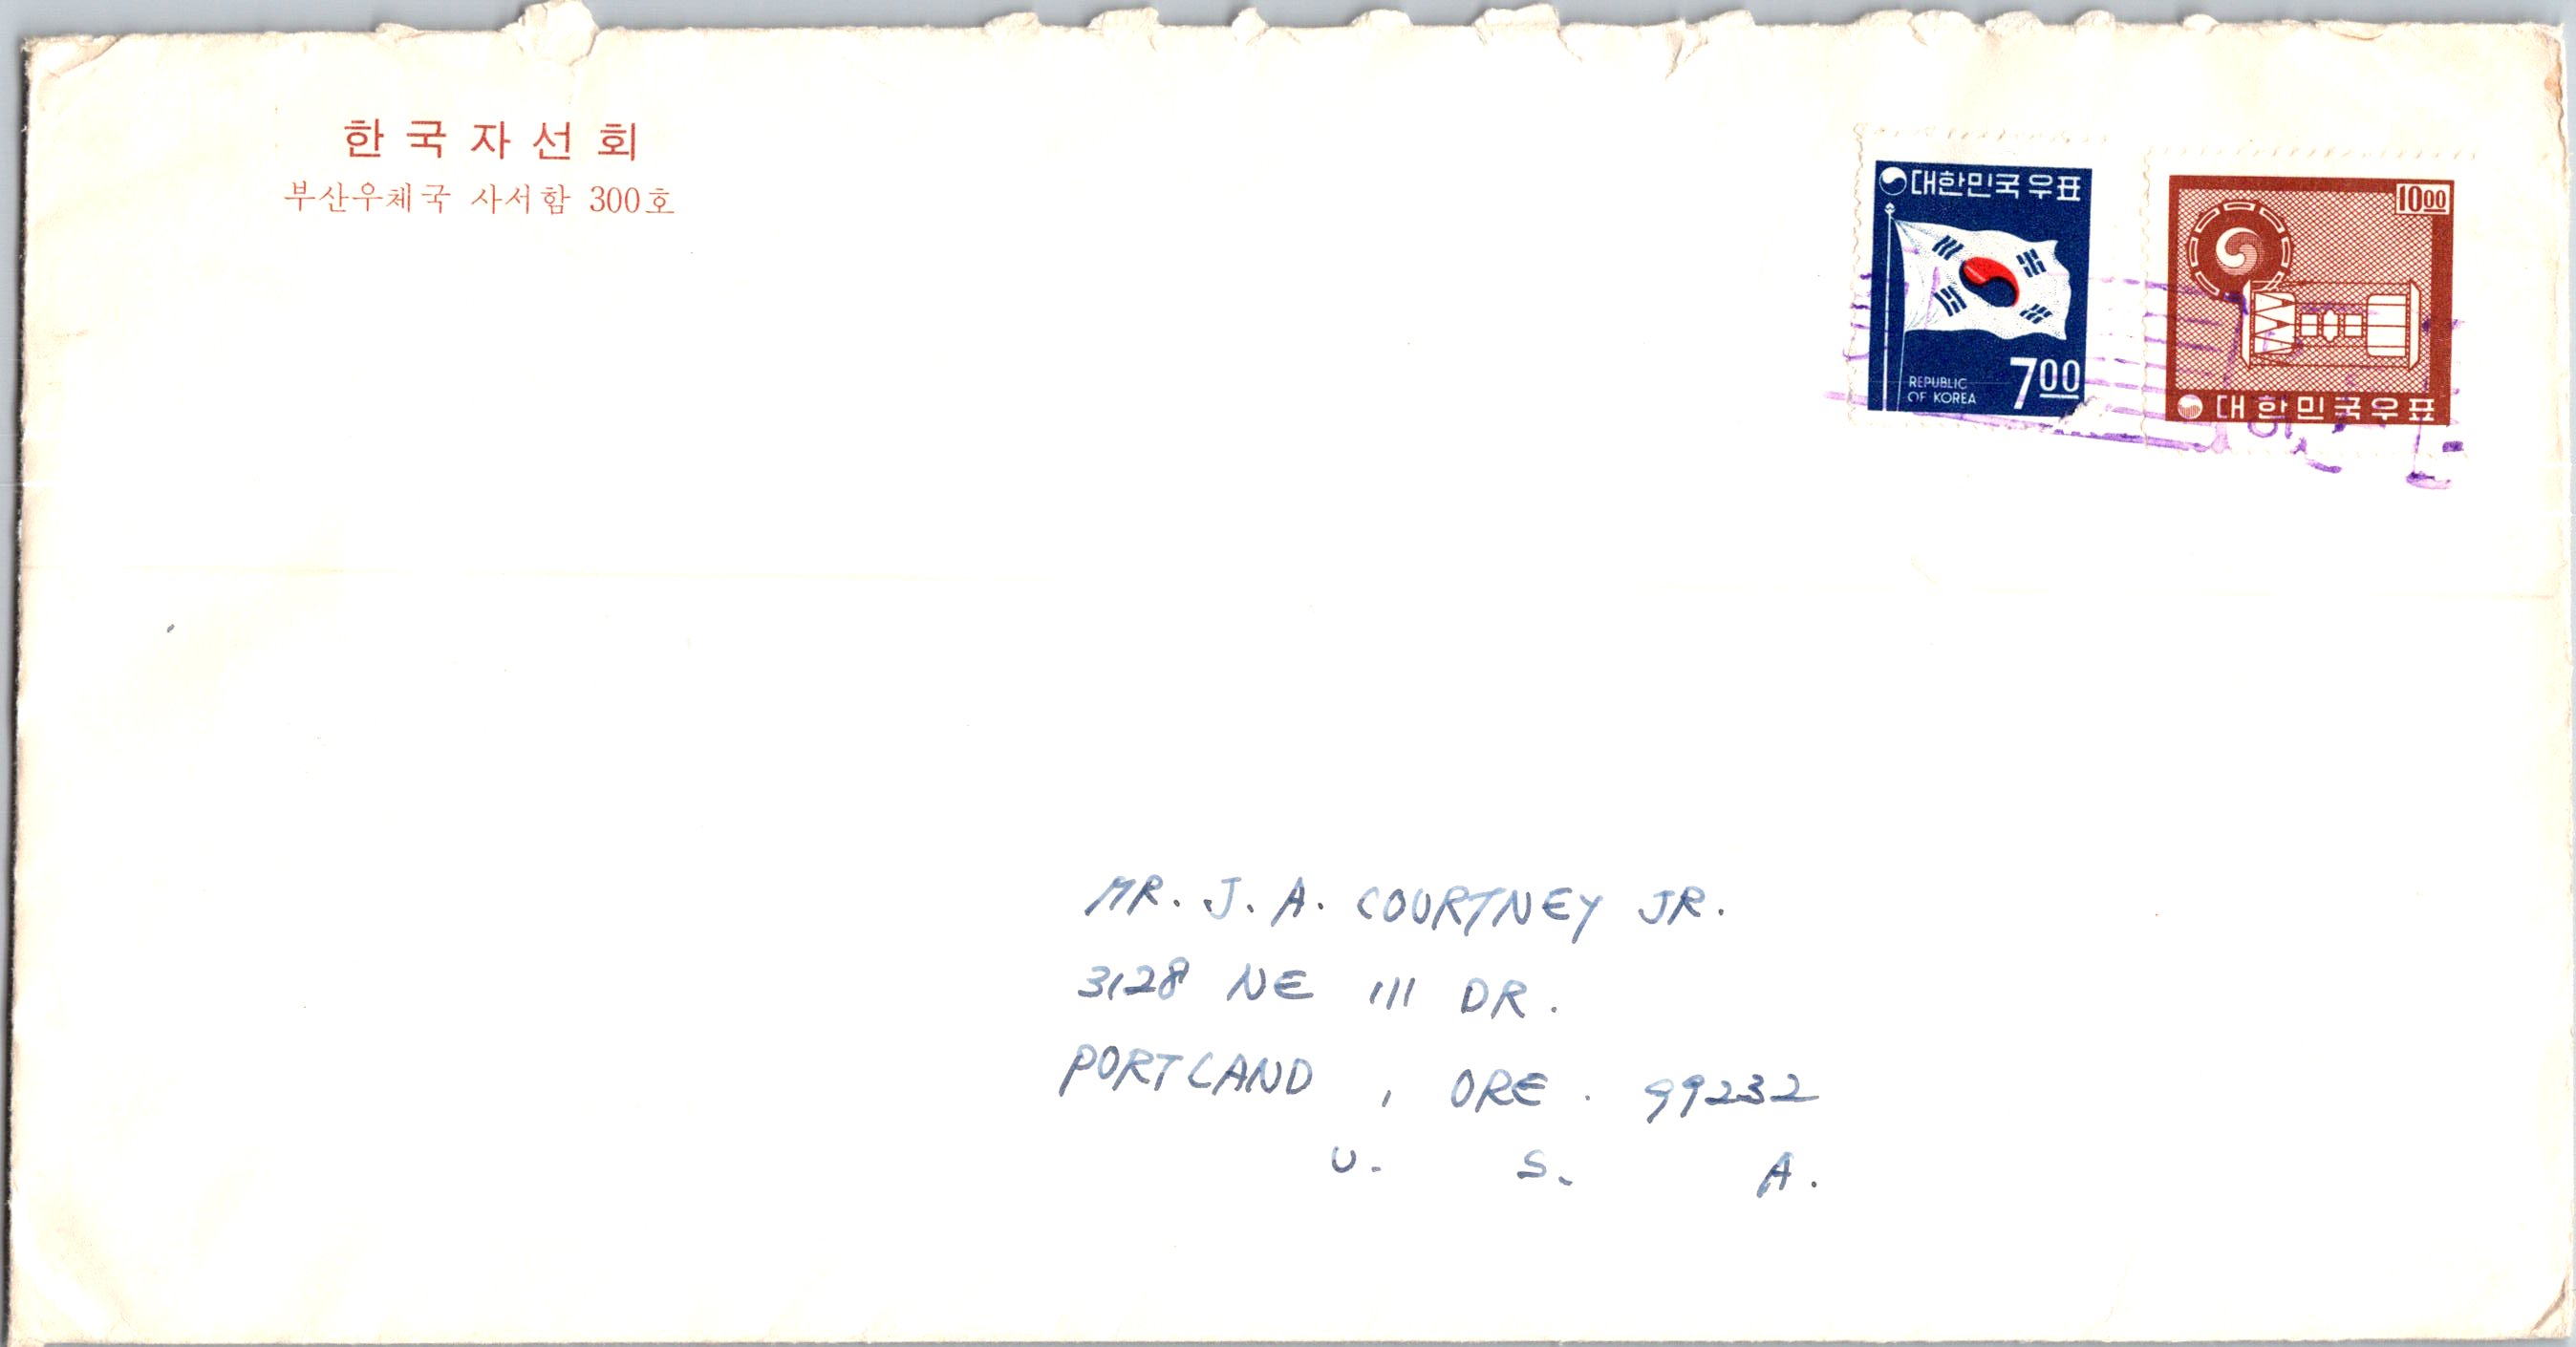 한국자선회
부산우체국 사서함 300호
대한민국우표
REPUBLIC
OF KOREA
700
1000
대한민국우표
MR. J. A. COURTNEY JR.
3128 NE 111 DR.
PORTLAND, ORE. 99232
U. S. A.